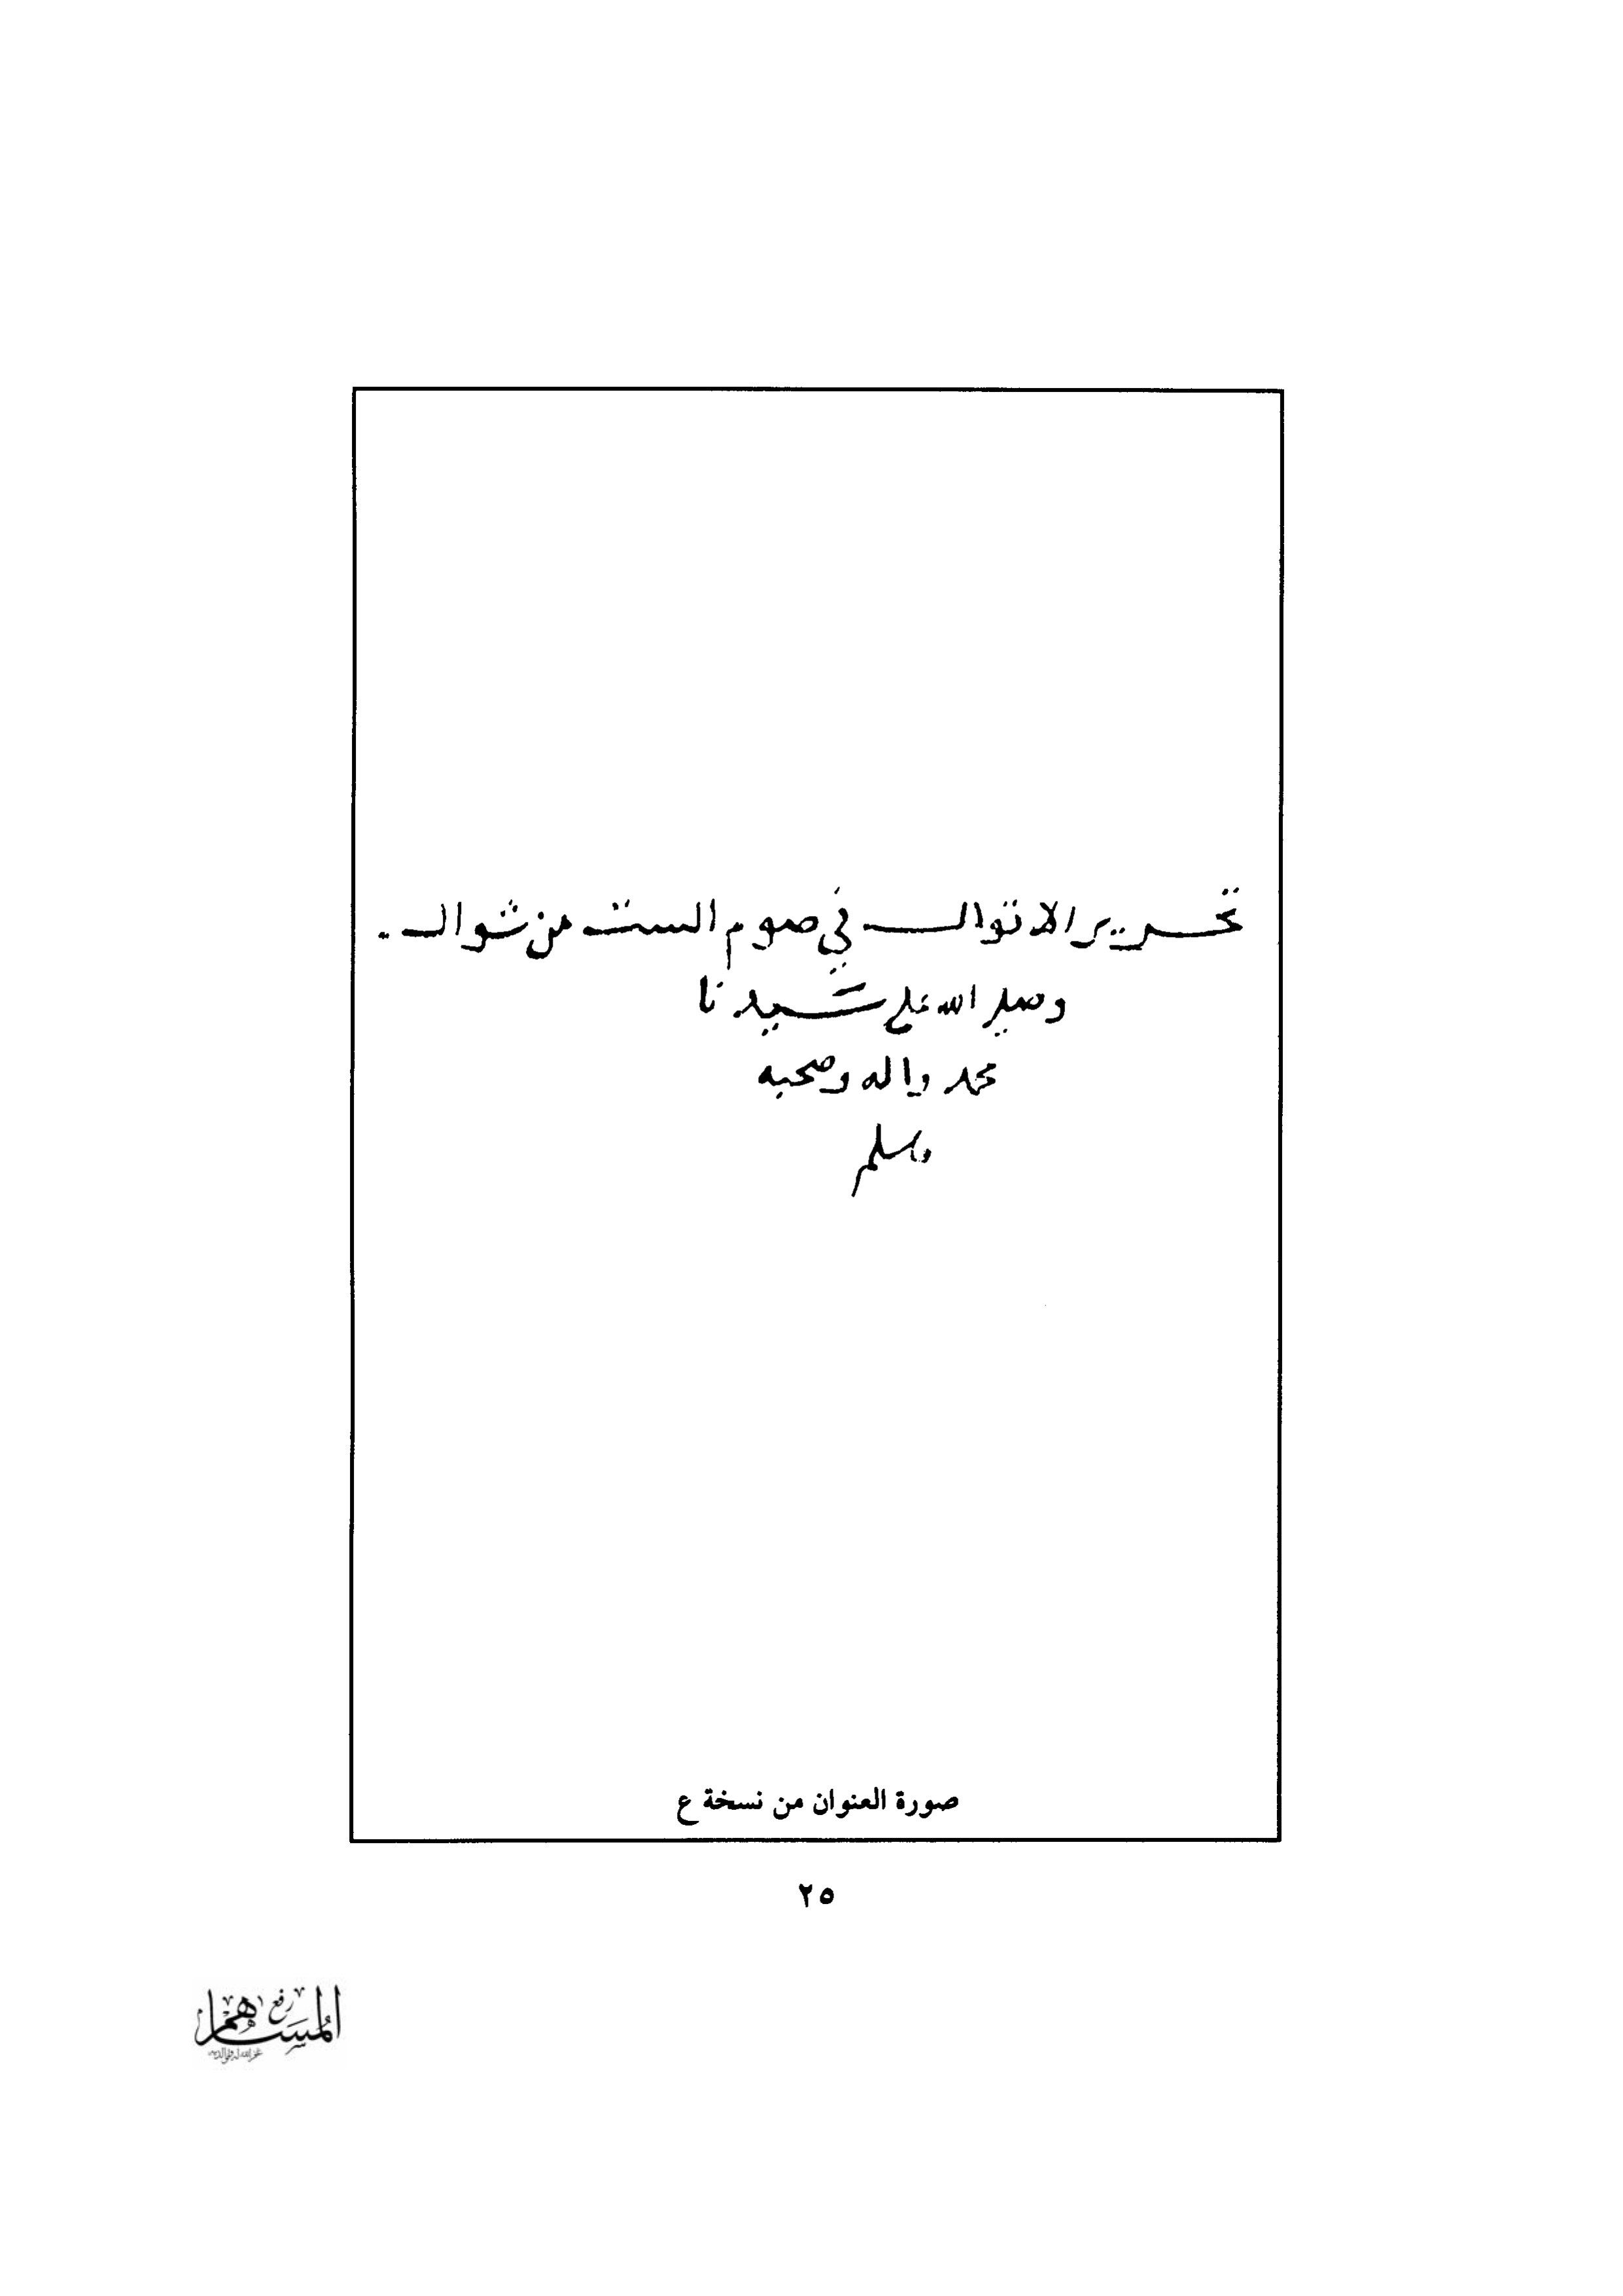 تحرير الاقوال في صوم الست من شوال
وصلى الله على سيدنا
محمد واله وصحبه
وسلم
صورة العنوان من نسخة ع
٢٥
رفع
المساهم
غفر الله له ولوالديه